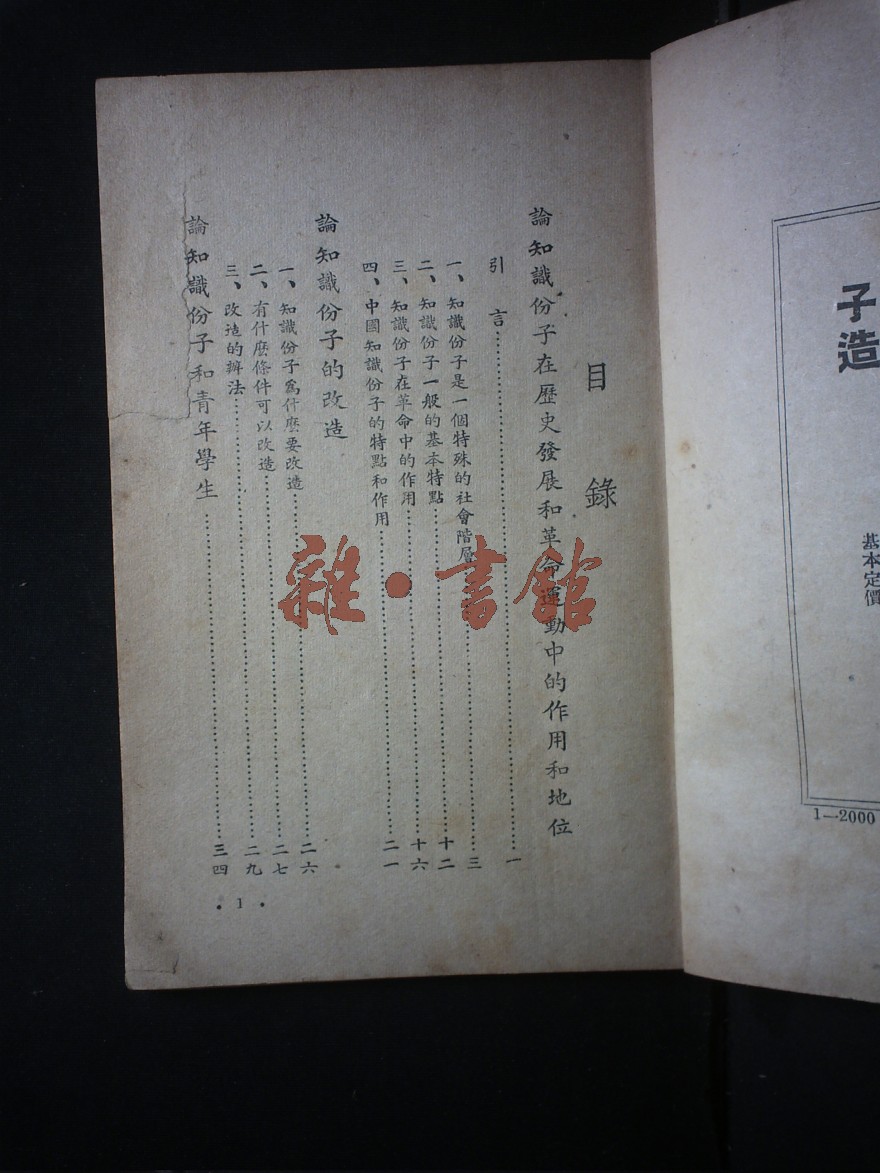 子
造
基本定價
1—2000
目錄
論知識份子在歷史發展和革命運動中的作用和地位
引言……一
一、知識份子是一個特殊的社會階層……三
二、知識份子一般的基本特點……十二
三、知識份子在革命中的作用……十六
四、中國知識份子的特點和作用……二一
論知識份子的改造
一、知識份子爲什麽要改造……二六
二、有什麽條件可以改造……二七
三、改造的辦法……二九
論知識份子和青年學生……三四
• 1 •
雜•書館